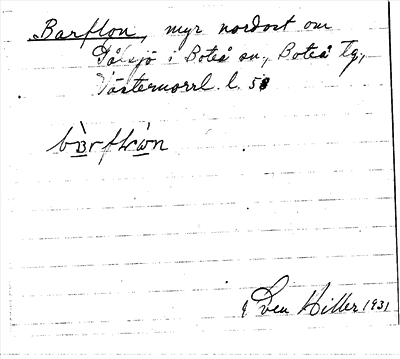 Barflon, myr nordost om
Pålsjö i Boteå sn, Boteå tg,
Västernorrl. l. 58
bàrflòn
Sven Hiller 1931